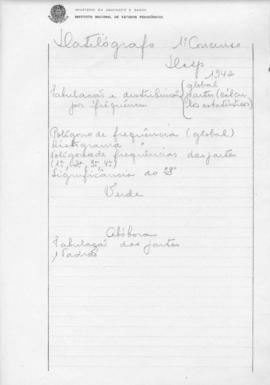 MINISTÉRIO DA EDUCAÇÃO E SAÚDE
INSTITUTO NACIONAL DE ESTUDOS PEDAGÓGICOS
Datilógrafo 1º Concurso
Dasp
1942
Tabulação e distribuição global
por frequência partes (cálcu
los estatísticos)
Polígono de frequência (global)
Histograma "
Polígono de frequências das partes
(1ª, 2ª, 3ª, 4ª)
Significância do
Verde
Abóbora
Tabulação das partes